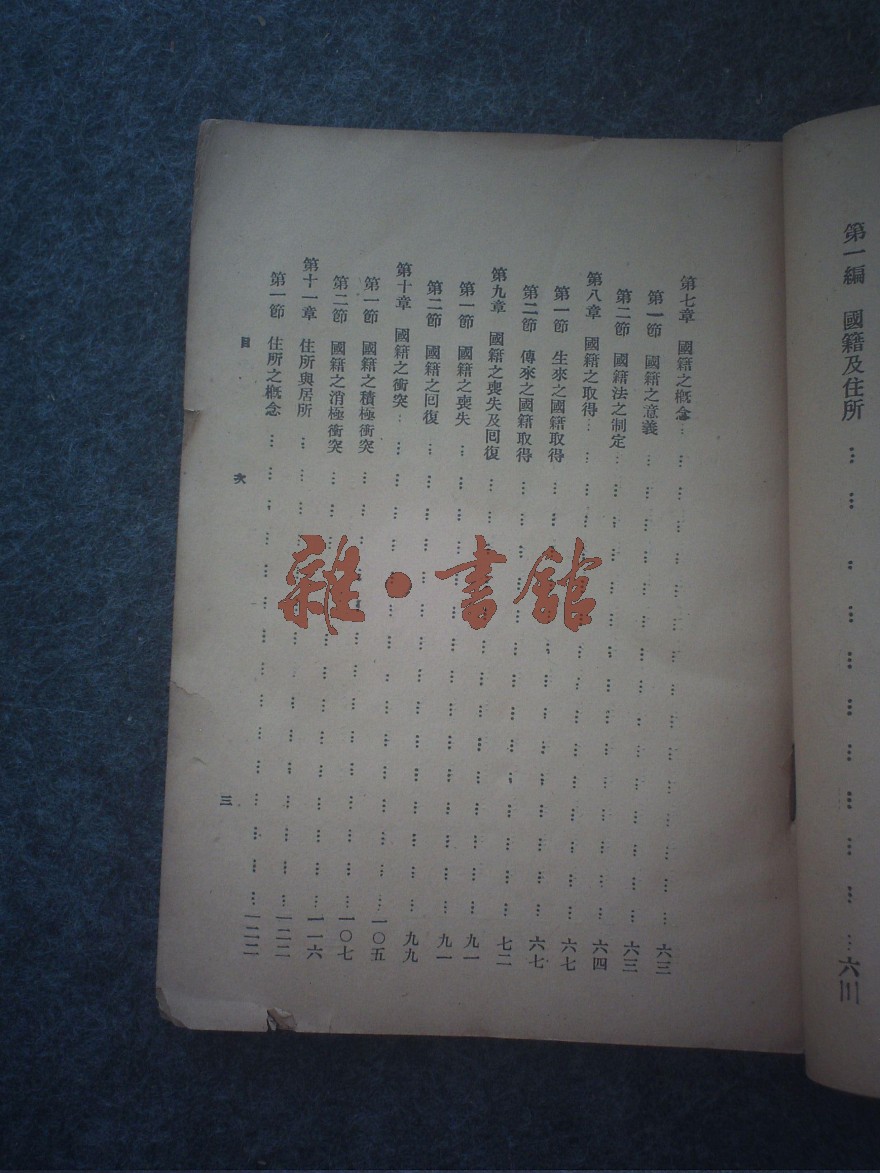 第一編 國籍及住所 … 六三
第七章 國籍之概念 … 六三
第一節 國籍之意義 … 六三
第二節 國籍法之制定 … 六四
第八章 國籍之取得 … 六七
第一節 生來之國籍取得 … 六七
第二節 傳來之國籍取得 … 七二
第九章 國籍之喪失及回復 … 九一
第一節 國籍之喪失 … 九一
第二節 國籍之回復 … 九九
第十章 國籍之衝突 … 一〇五
第一節 國籍之積極衝突 … 一〇七
第二節 國籍之消極衝突 … 一一六
第十一章 住所與居所 … 一二二
第一節 住所之概念 … 一二二
目次 三
雜·書館